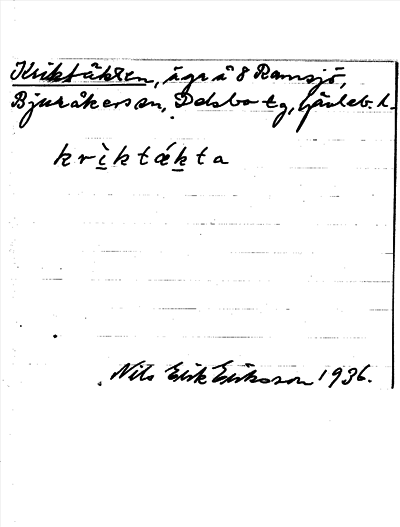 Kriktäkten, ägr å 8 Ramsjö,
Bjuråkers sn, Delsbo tg, Gävleb. l.
krìktǽkta
Nils Erik Eriksson 1936.